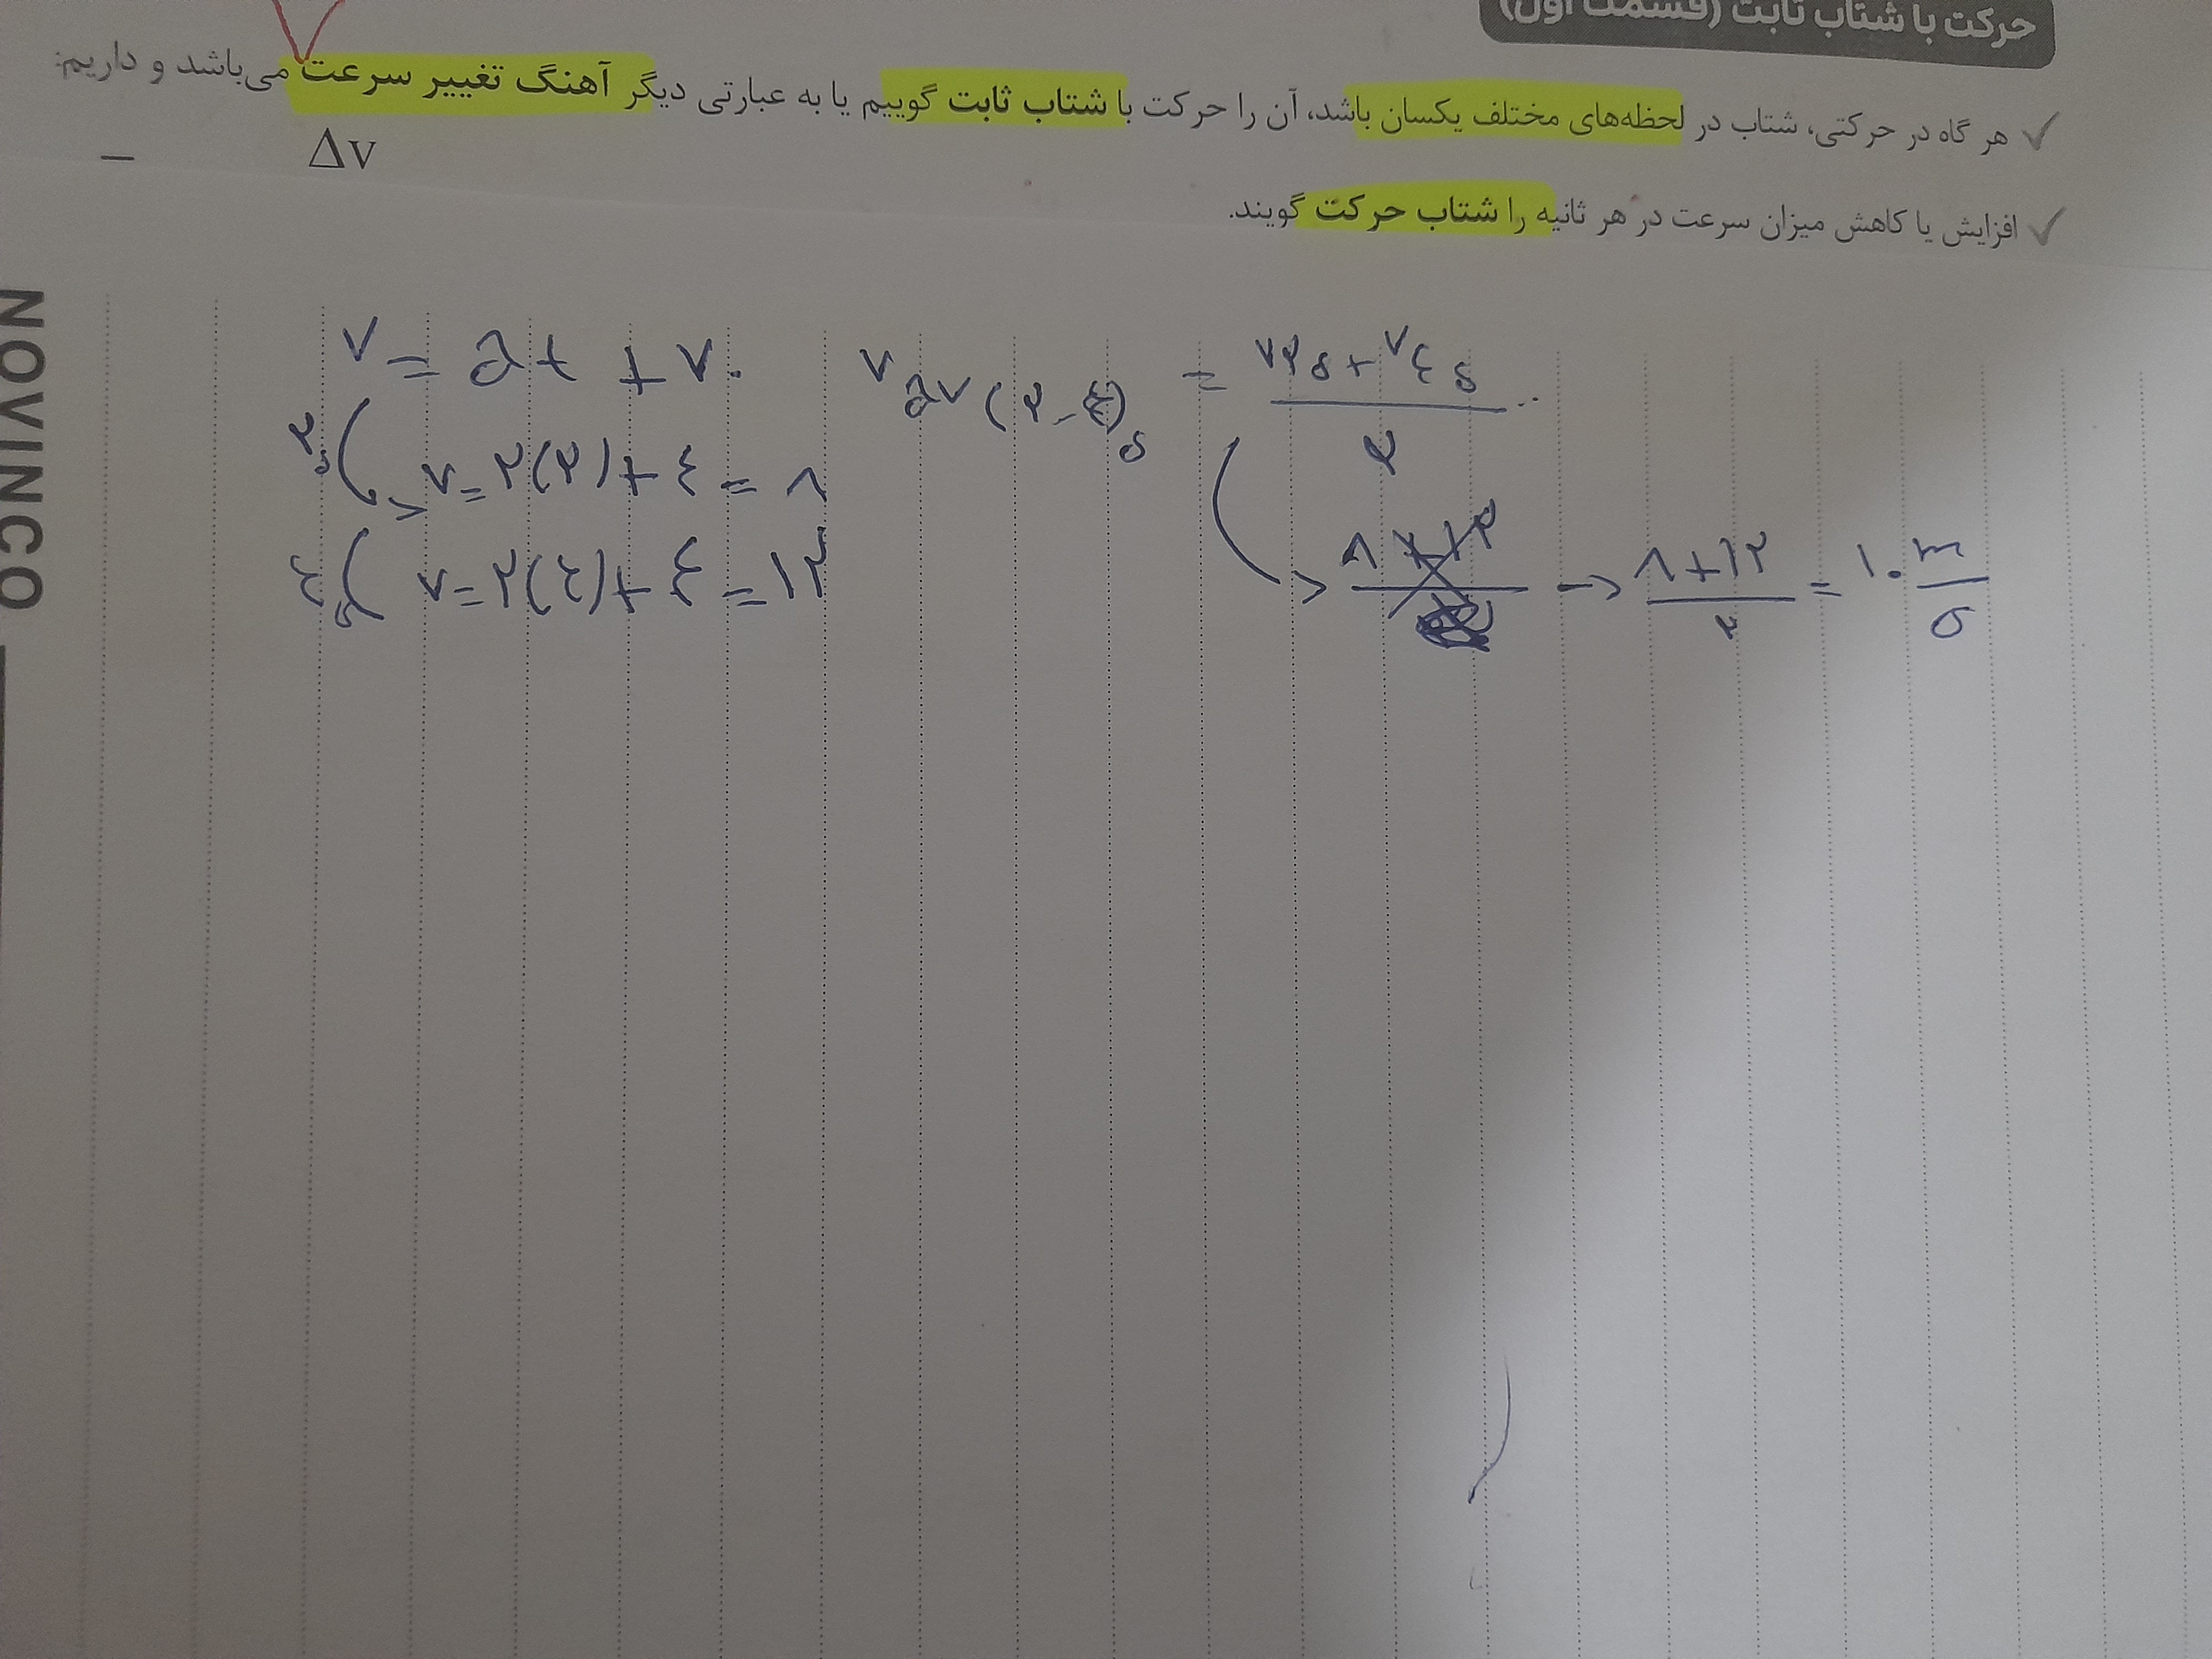 حرکت با شتاب ثابت (قسمت اول)
✓ هر گاه در حرکتی، شتاب در لحظه‌های مختلف یکسان باشد، آن را حرکت با شتاب ثابت گوییم یا به عبارتی دیگر آهنگ تغییر سرعت می‌باشد و داریم:
Δv
–
✓ افزایش یا کاهش میزان سرعت در هر ثانیه را شتاب حرکت گویند.
NOVINCO
v = at + v۰
v = ۲(۲) + ۴ = ۸
v = ۲(۴) + ۴ = ۱۲
vav (۲-۴)s = (v۲s + v۴s) / ۲
→ (۸ + ۱۲) / ۲ = ۱۰ m/s